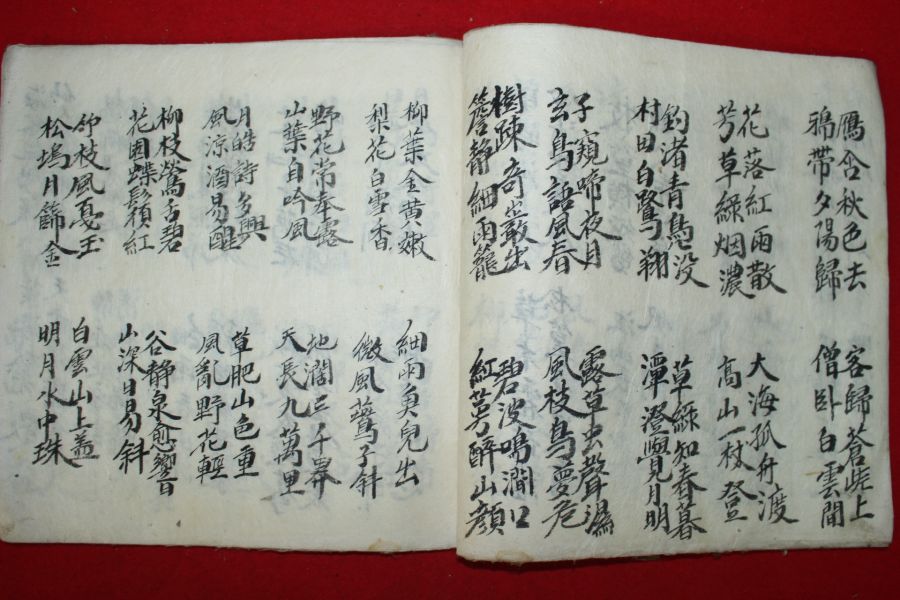 鴈含秋色去
鴉帶夕陽歸
花落紅雨散
芳草綠烟濃
釣渚青鳧没
村田白鷺翔
子窺啼夜月
玄鳥語風春
樹踈奇巖出
簷静細雨籠
客歸蒼上
僧卧白雲間
大海孤舟渡
高山一杖登
草綠知春暮
潭澄覺月明
露草虫聲濕
風枝鳥夢危
碧波鳴澗口
紅蕚醉山顔
柳葉金黄嫩
梨花白雪香
野花常奉露
山葉自吟風
月皓詩多興
風凉酒易醒
柳枝鶯舌碧
花園蝶鬚紅
竹枝風戛玉
松塢月篩金
細雨魚兒出
微風鷰子斜
地濶三千界
天長九萬里
草肥山色重
風亂野花輕
谷静泉愈響
山深日易斜
白雲山上盖
明月水中珠